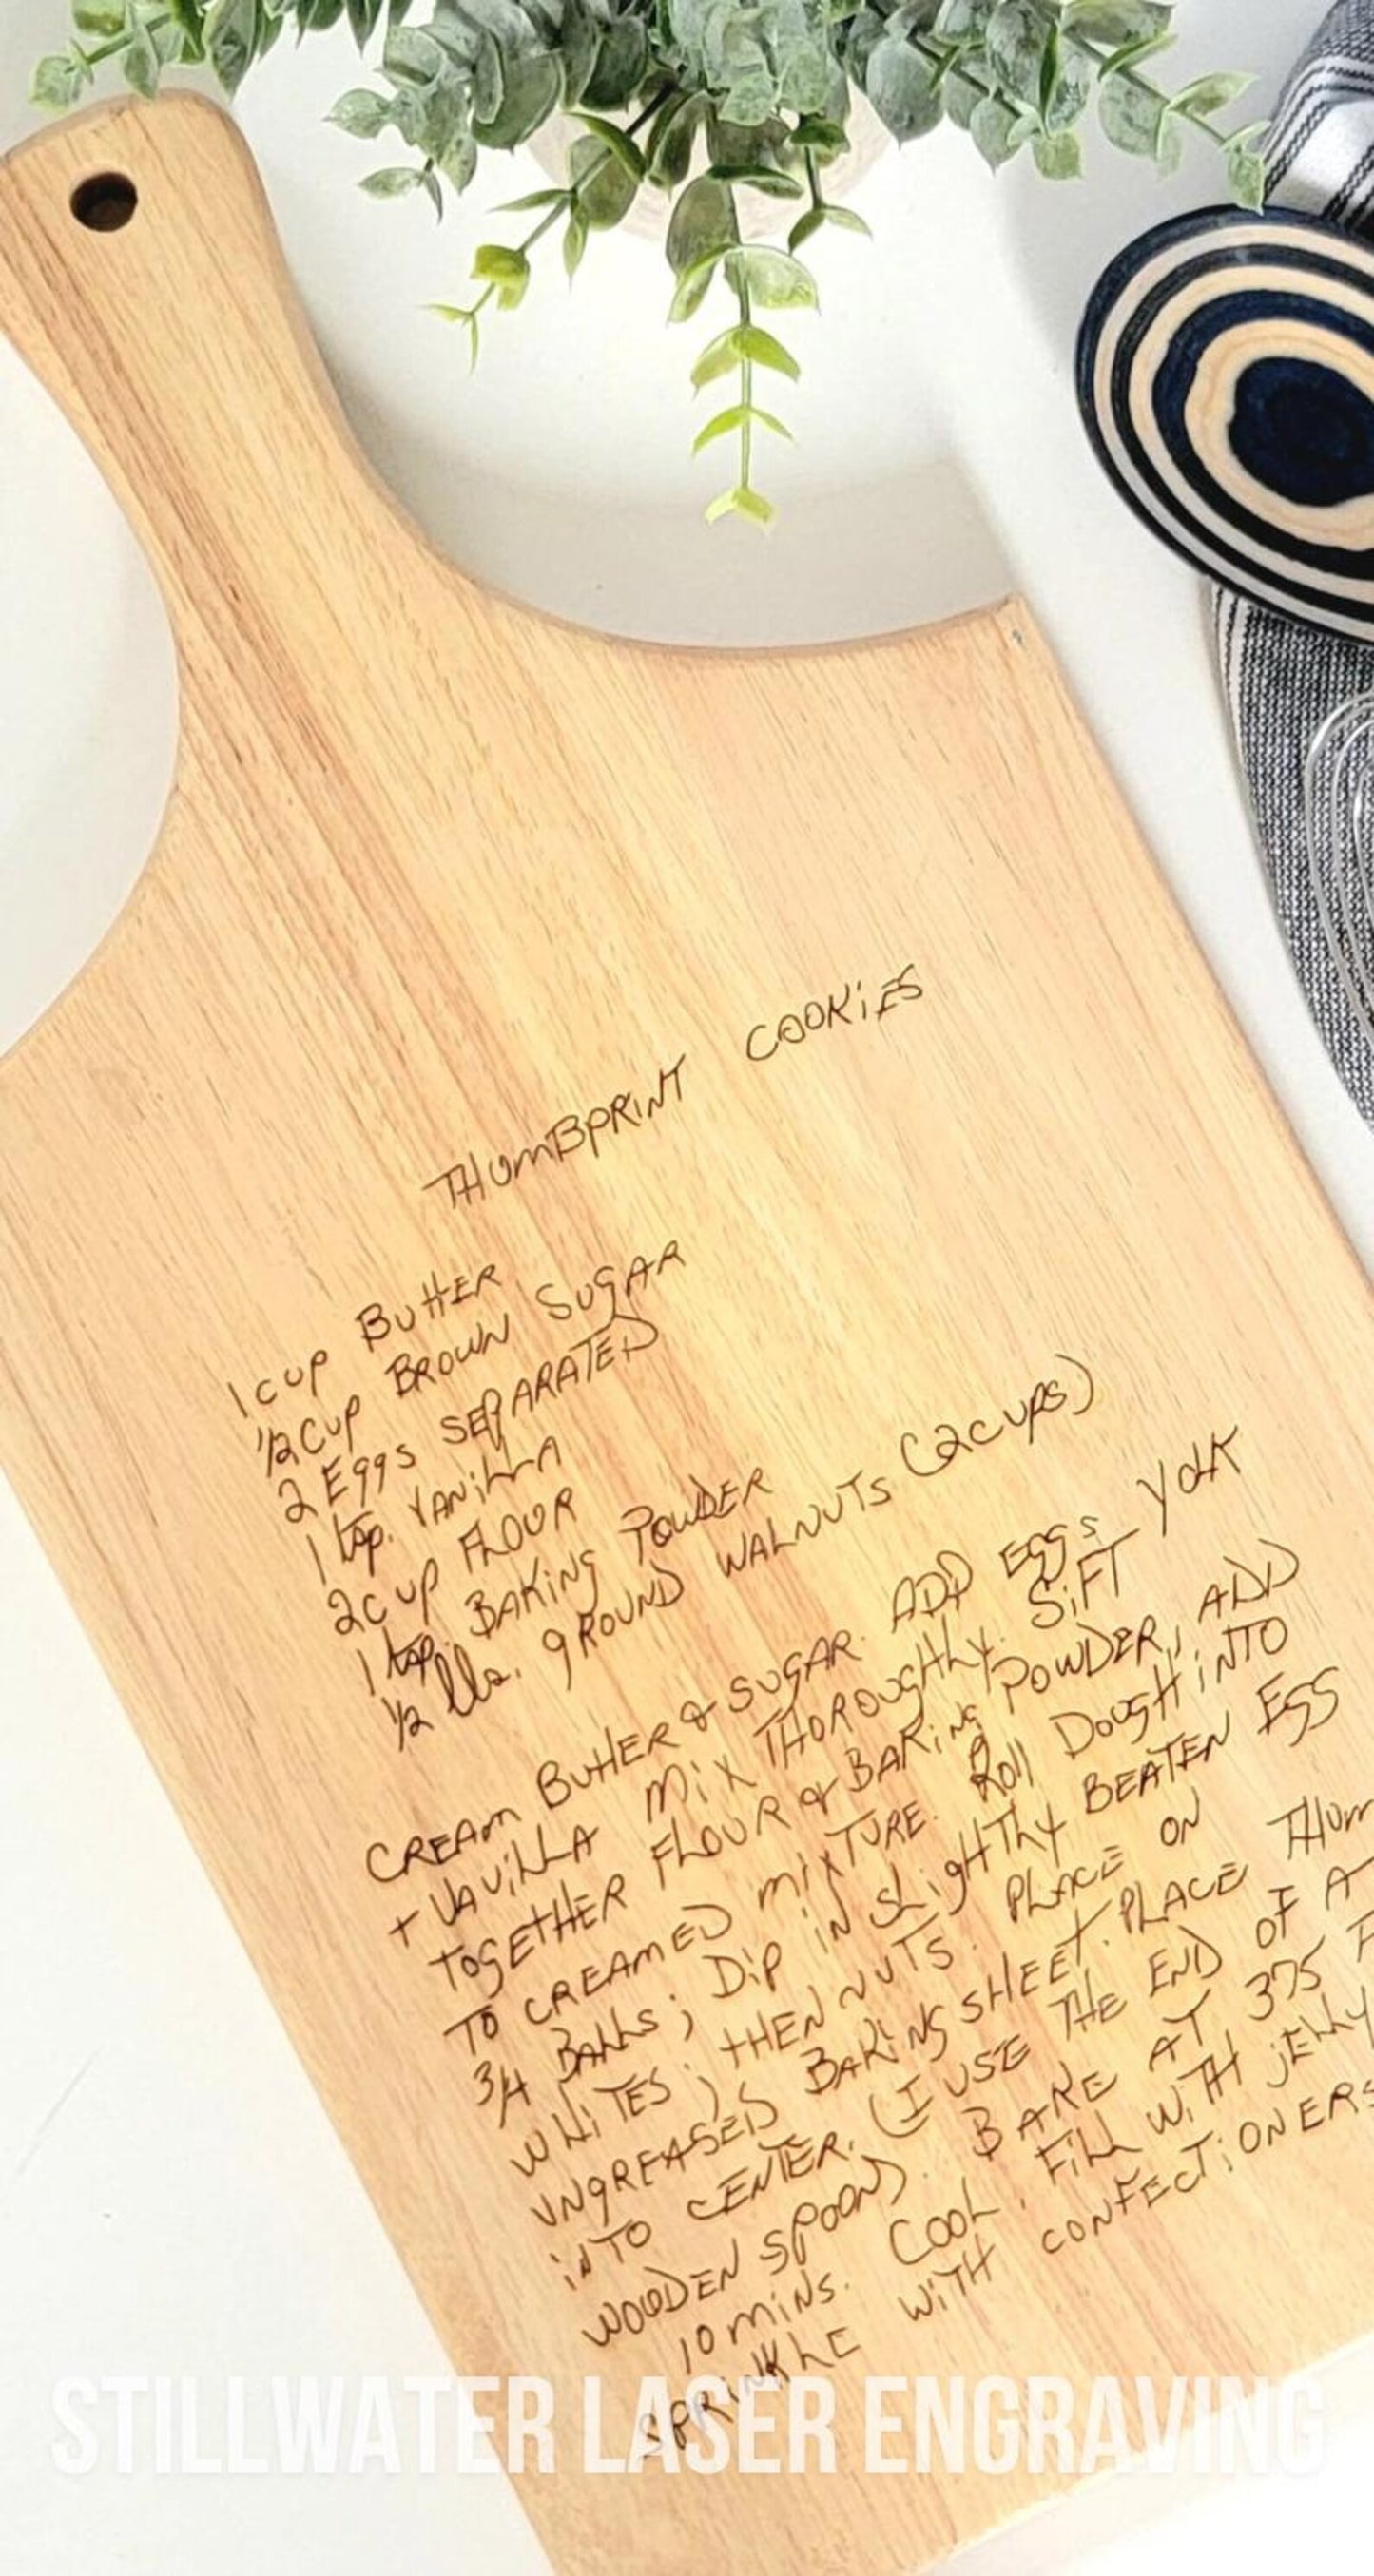 THUMBPRINT COOKiES
1 CUP BUTTER
1/2 CUP BROWN SUGAR
2 Eggs SEPARATED
1 tsp. VANiLLA
2 CUP FLOUR
1 tsp. BAKiNg POWDER
1/2 lbs. gROUND WALNUTS (2 CUPS)
CREAM BUTTER & SUGAR. ADD EGGS YOLK
+ VAViLLA MiX THOROUGHLY. SiFT
TOGETHER FLOUR & BAKiNg POWDER, ADD
TO CREAMED MiXTURE. ROll DOUGH iNTO
3/4 BALLs; DiP iN SLigHTLY BEATEN EGG
WHiTES; THEN NUTS. PLACE ON
UNgREASED BAKiNG SHEET. PLACE THUM
iNTO CENTER. (I USE THE END OF A
WOODEN SPOON). BAKE AT 375 F
10 MiNS. COOL. FiLL WiTH jELLY
SPRiNKLE WiTH CONFECTiONERS
STILLWATER LASER ENGRAVING